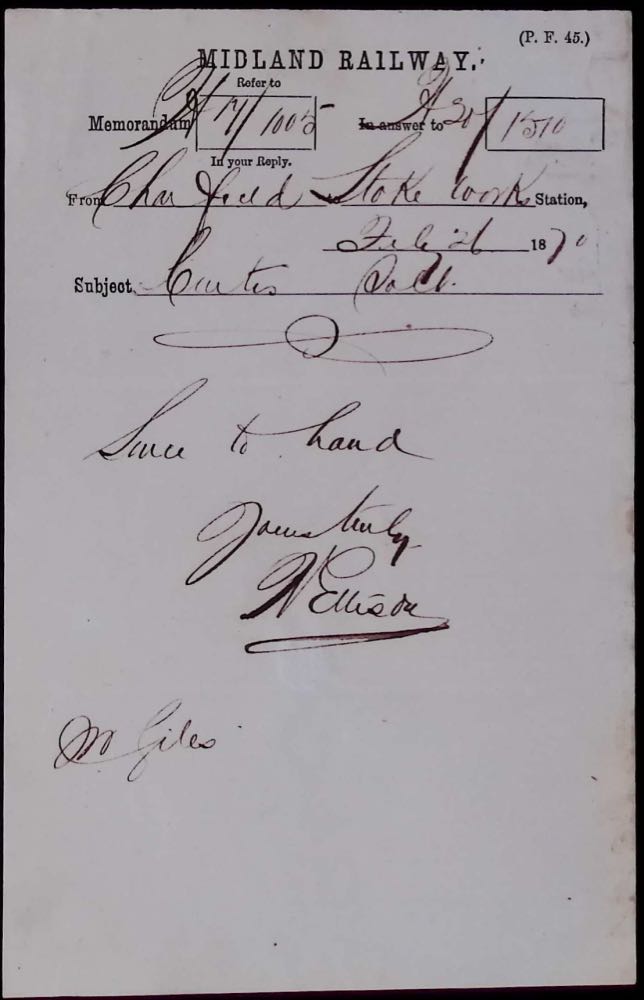 (P. F. 45.)
MIDLAND RAILWAY.
Refer to
Memorandum 17/1005 In answer to 20/1510
In your Reply.
From Charfield Stoke Works Station,
Feb 26 1870
Subject Curtis Salt.
Since to hand
Yours truly
W Ellison
Mr Giles